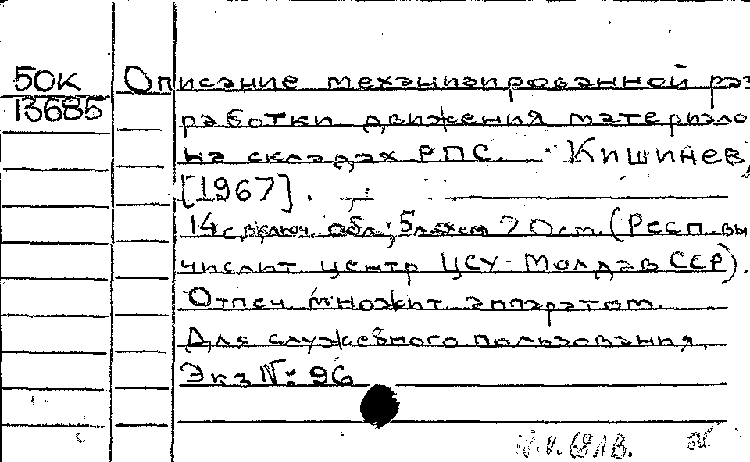 50К
13685
Описание механизированной раз
работки движения материало
на складах РПС. Кишинев,
[1967].
14 с. включ. обл.; 20 см. (Респ. вы
числит центр ЦСУ Молдав ССР).
Отпеч множит аппаратом.
Для служебного пользования.
Экз №: 96